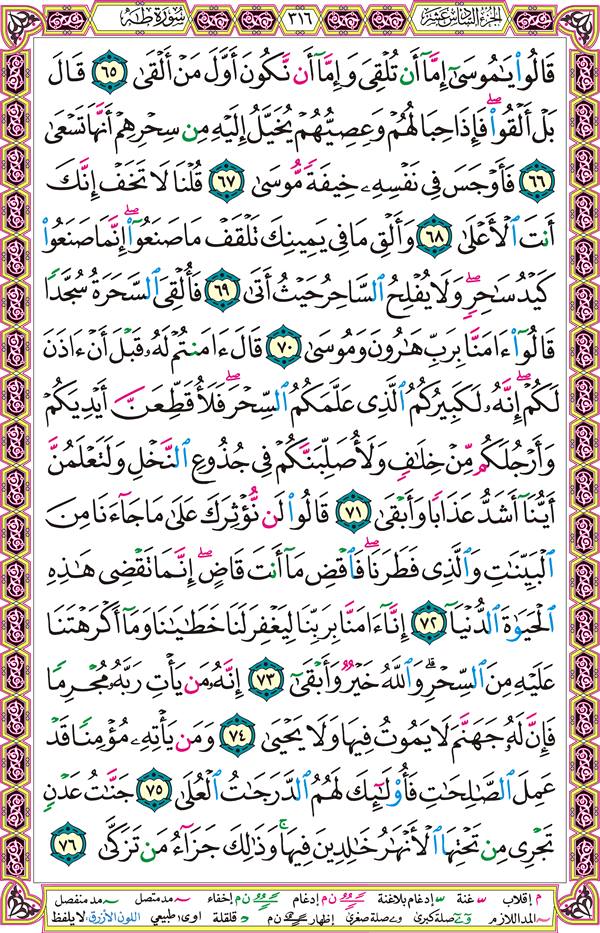 الجزء السادس عشر ٣١٦ سورة طه
قَالُوا۟ يَـٰمُوسَىٰٓ إِمَّآ أَن تُلْقِىَ وَإِمَّآ أَن نَّكُونَ أَوَّلَ مَنْ أَلْقَىٰ ٦٥ قَالَ
بَلْ أَلْقُوا۟ ۖ فَإِذَا حِبَالُهُمْ وَعِصِيُّهُمْ يُخَيَّلُ إِلَيْهِ مِن سِحْرِهِمْ أَنَّهَا تَسْعَىٰ
٦٦ فَأَوْجَسَ فِى نَفْسِهِۦ خِيفَةً مُّوسَىٰ ٦٧ قُلْنَا لَا تَخَفْ إِنَّكَ
أَنتَ ٱلْأَعْلَىٰ ٦٨ وَأَلْقِ مَا فِى يَمِينِكَ تَلْقَفْ مَا صَنَعُوٓا۟ ۖ إِنَّمَا صَنَعُوا۟
كَيْدُ سَـٰحِرٍ ۖ وَلَا يُفْلِحُ ٱلسَّاحِرُ حَيْثُ أَتَىٰ ٦٩ فَأُلْقِىَ ٱلسَّحَرَةُ سُجَّدًا
قَالُوٓا۟ ءَامَنَّا بِرَبِّ هَـٰرُونَ وَمُوسَىٰ ٧٠ قَالَ ءَامَنتُمْ لَهُۥ قَبْلَ أَنْ ءَاذَنَ
لَكُمْ ۖ إِنَّهُۥ لَكَبِيرُكُمُ ٱلَّذِى عَلَّمَكُمُ ٱلسِّحْرَ ۖ فَلَأُقَطِّعَنَّ أَيْدِيَكُمْ
وَأَرْجُلَكُم مِّنْ خِلَـٰفٍ وَلَأُصَلِّبَنَّكُمْ فِى جُذُوعِ ٱلنَّخْلِ وَلَتَعْلَمُنَّ
أَيُّنَآ أَشَدُّ عَذَابًا وَأَبْقَىٰ ٧١ قَالُوا۟ لَن نُّؤْثِرَكَ عَلَىٰ مَا جَآءَنَا مِنَ
ٱلْبَيِّنَـٰتِ وَٱلَّذِى فَطَرَنَا ۖ فَٱقْضِ مَآ أَنتَ قَاضٍ ۖ إِنَّمَا تَقْضِى هَـٰذِهِ
ٱلْحَيَوٰةَ ٱلدُّنْيَآ ٧٢ إِنَّآ ءَامَنَّا بِرَبِّنَا لِيَغْفِرَ لَنَا خَطَـٰيَـٰنَا وَمَآ أَكْرَهْتَنَا
عَلَيْهِ مِنَ ٱلسِّحْرِ ۗ وَٱللَّهُ خَيْرٌ وَأَبْقَىٰٓ ٧٣ إِنَّهُۥ مَن يَأْتِ رَبَّهُۥ مُجْرِمًا
فَإِنَّ لَهُۥ جَهَنَّمَ لَا يَمُوتُ فِيهَا وَلَا يَحْيَىٰ ٧٤ وَمَن يَأْتِهِۦ مُؤْمِنًا قَدْ
عَمِلَ ٱلصَّـٰلِحَـٰتِ فَأُو۟لَـٰٓئِكَ لَهُمُ ٱلدَّرَجَـٰتُ ٱلْعُلَىٰ ٧٥ جَنَّـٰتُ عَدْنٍ
تَجْرِى مِن تَحْتِهَا ٱلْأَنْهَـٰرُ خَـٰلِدِينَ فِيهَا ۚ وَذَٰلِكَ جَزَآءُ مَن تَزَكَّىٰ ٧٦
م إقلاب غنة إدغام بلاغنة ن م إدغام ن م إخفاء مد متصل مد منفصل
المد اللازم صلة كبرى صلة صغرى إظهار ن م قلقلة اوى طبيعي اللون الأزرق: لا يلفظ